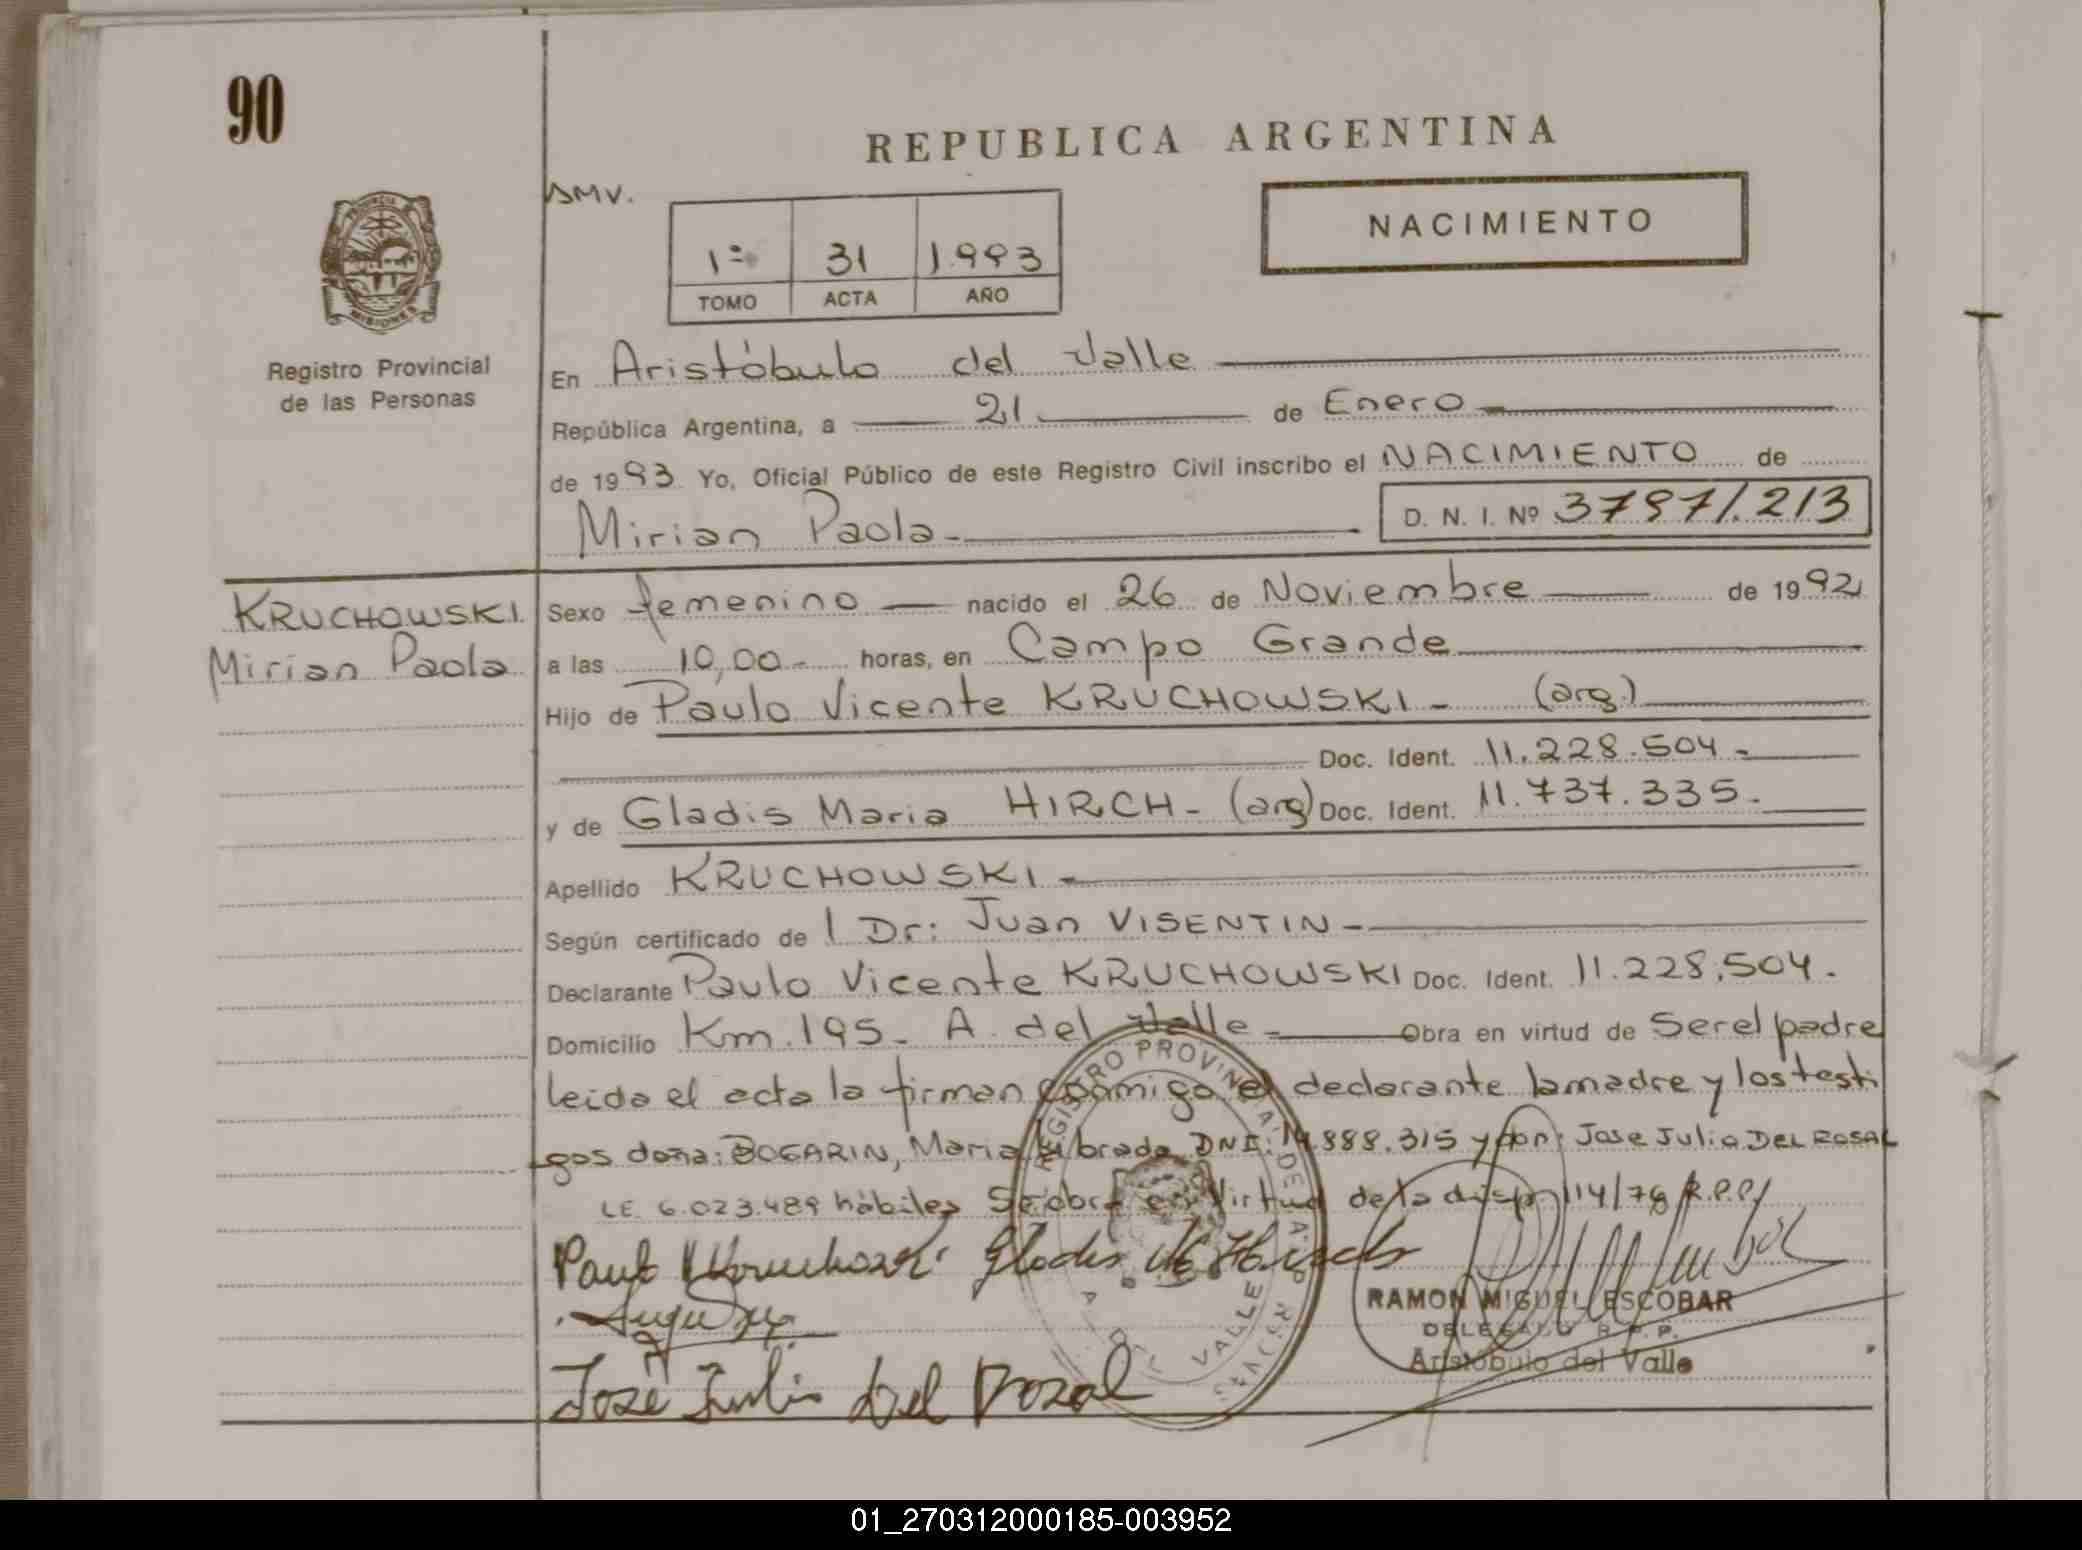 90
REPUBLICA ARGENTINA
SMV.
NACIMIENTO
1º 31 1993
TOMO ACTA AÑO
PROVINCIA
MISIONES
Registro Provincial
de las Personas
En Aristóbulo del Valle
República Argentina, a 21 de Enero
de 1993 Yo, Oficial Público de este Registro Civil inscribo el NACIMIENTO de
Mirian Paola- D. N. I. Nº
KRUCHOWSKI
Mirian Paola
Sexo femenino nacido el 26 de Noviembre de 1992
a las 10,00- horas, en Campo Grande
Hijo de Paulo Vicente KRUCHOWSKI - (arg.)
Doc. Ident. 11.228.504 -
y de Gladis Maria HIRCH - (arg) Doc. Ident. 11.737.335.
Apellido KRUCHOWSKI -
Según certificado de l Dr: Juan VISENTIN -
Declarante Paulo Vicente KRUCHOWSKI Doc. Ident. 11.228.504.
Domicilio Km.195- A. del Valle - Obra en virtud de Ser el padre
leida el acta la firman conmigo el declarante la madre y los testi
gos doña: BOGARIN, Maria Librada DNI: 14.888.315 y don: Jose Julio DEL ROSAL
LE. 6.023.489 hábiles Se obra en Virtud de la disp. 114/78 R.P.P/
Gladis M Hirch
RAMON MIGUEL ESCOBAR
DELEGADO R.P.P.
Aristóbulo del Valle
José Julio Del Rosal
REGISTRO PROVINCIAL DE LAS PERSONAS
A. DEL VALLE
01_270312000185-003952